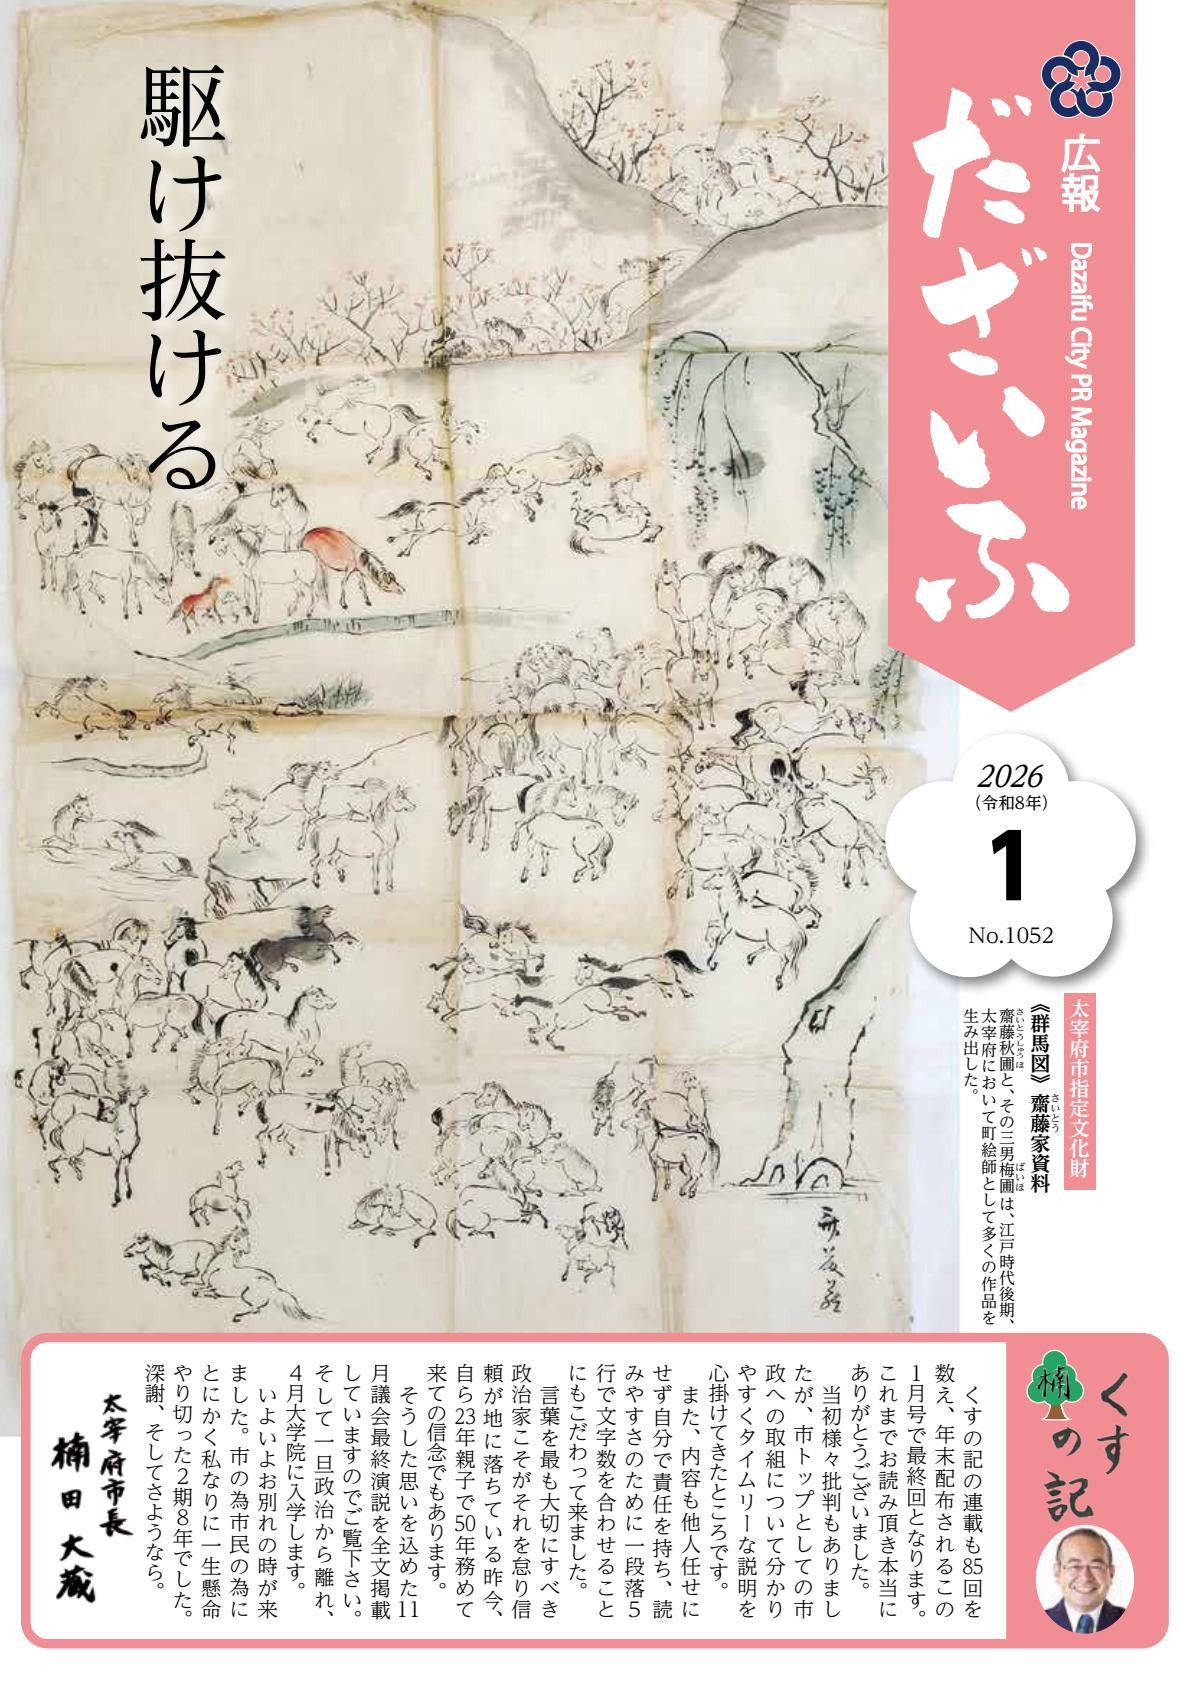 広報
だざいふ
Dazaifu City PR Magazine
駆け抜ける
2026
(令和8年)
1
No.1052
太宰府市指定文化財
《群馬図》 齋藤家資料
さいとう
齋藤秋圃と、その三男梅圃は、江戸時代後期、
さいとうしゅうほ
ばいほ
太宰府において町絵師として多くの作品を
生み出した。
くすの記
楠
くすの記の連載も85回を
数え、年末配布されるこの
1月号で最終回となります。
これまでお読み頂き本当に
ありがとうございました。
当初様々批判もありまし
たが、市トップとしての市
政への取組について分かり
やすくタイムリーな説明を
心掛けてきたところです。
また、内容も他人任せに
せず自分で責任を持ち、読
みやすさのために一段落5
行で文字数を合わせること
にもこだわって来ました。
言葉を最も大切にすべき
政治家こそがそれを怠り信
頼が地に落ちている昨今、
自ら23年親子で50年務めて
来ての信念でもあります。
そうした思いを込めた11
月議会最終演説を全文掲載
していますのでご覧下さい。
そして一旦政治から離れ、
4月大学院に入学します。
いよいよお別れの時が来
ました。市の為市民の為に
とにかく私なりに一生懸命
やり切った2期8年でした。
深謝、そしてさようなら。
太宰府市長
楠田大蔵